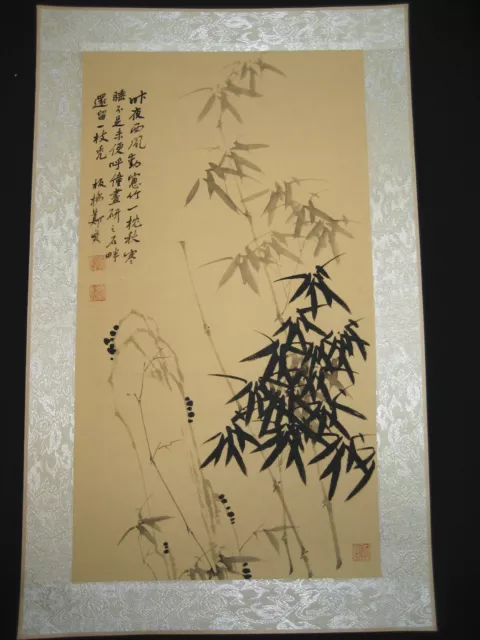 昨夜西風動窓竹一枕秋寒
睡不足来便呼僮畫研之石畔
還留一枝亮 板橋鄭燮